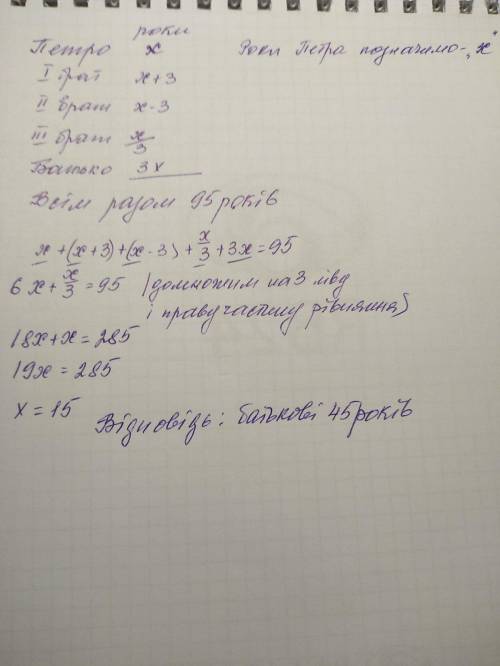 роки
Петро x Роки Петра позначимо - "x"
I брат x+3
II брат x-3
III брат x/3
Батько 3x
Всім разом 95 років
x + (x+3) + (x-3) + x/3 + 3x = 95
6x + x/3 = 95 (домножим на 3 ліву
і праву частину рівняння)
18x + x = 285
19x = 285
x = 15
Відповідь: батькові 45 років